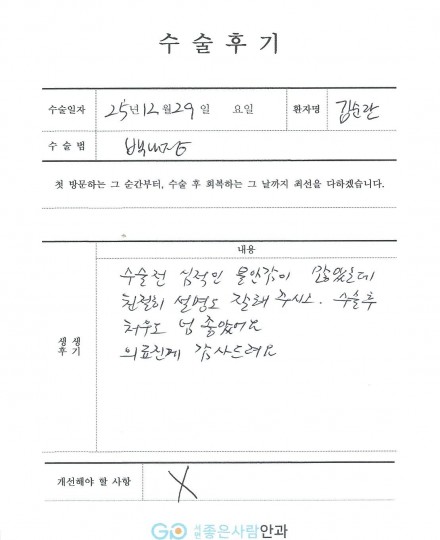 수술후기
수술일자 25년 12월 29일 요일 환자명 김순란
수술법 백내장
첫 방문하는 그 순간부터, 수술 후 회복하는 그 날까지 최선을 다하겠습니다.
내용
생생후기
수술전 심적인 불안감이 많았는데
친절히 설명도 잘해 주시고. 수술후
처우도 넘 좋았어요
의료진께 감사드려요
개선해야 할 사항 X
GO 서면 좋은사람안과